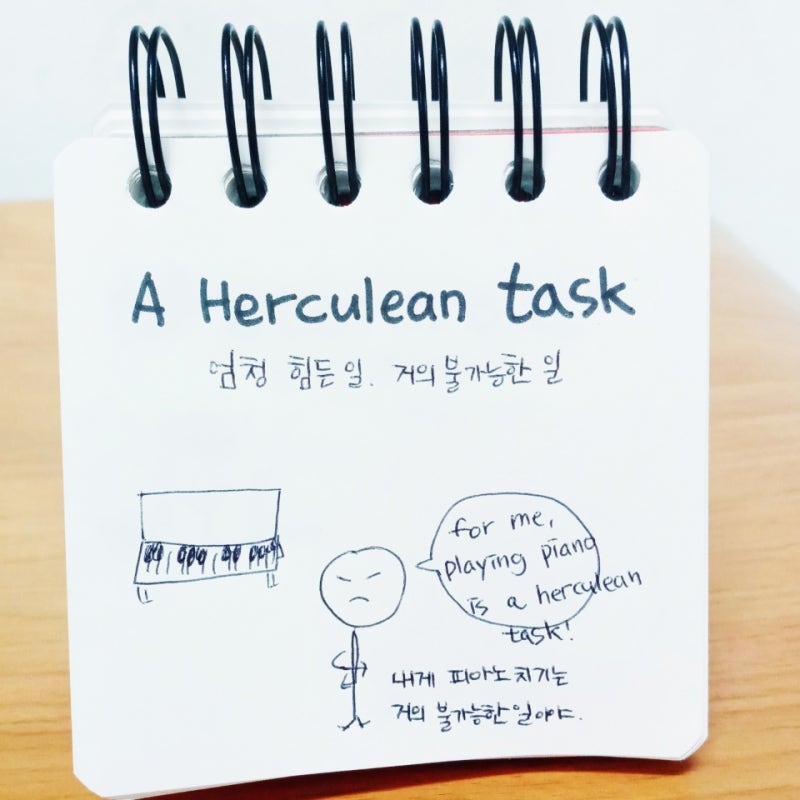 A Herculean task
엄청 힘든 일. 거의 불가능한 일
for me,
playing piano
is a herculean
task!
내게 피아노 치기는
거의 불가능한 일이야.